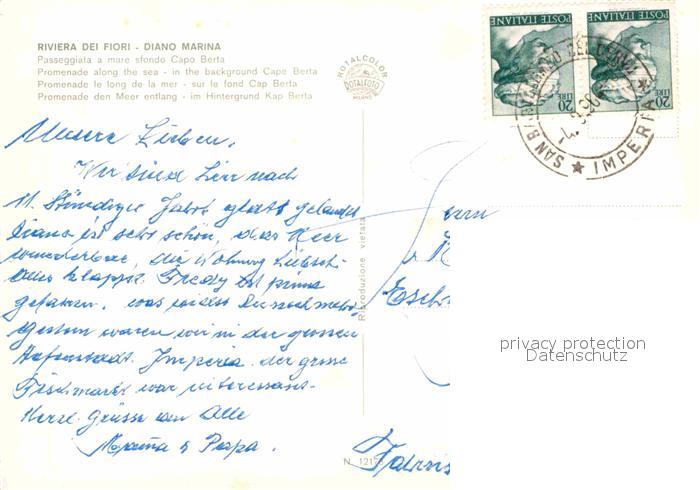 RIVIERA DEI FIORI - DIANO MARINA
Passeggiata a mare sfondo Capo Berta
Promenade along the sea - in the background Cape Berta
Promenade le long de la mer - sur le fond Cap Berta
Promenade den Meer entlang - im Hintergrund Kap Berta
ROTALCOLOR
ROTALFOTO
MILANO
POSTE ITALIANE
LIRE 20
POSTE ITALIANE
LIRE 20
SAN BARTOLOMEO DEL CERVO
IMPERIA
Unsere Lieben,
Wir sind hier nach
11 Stündiger Fahrt glatt gelandet
Diano ist sehr schön, das Meer
wunderbar, die Wohnung hübsch
alles klappt. Fredy ist prima
gefahren, was willst Du noch mehr.
Gestern waren wir in der grossen
Hafenstadt Imperia der grosse
Fischmarkt war interessant.
Herzl. Grüsse an Alle
Mama & Papa.
Riproduzione vietata
N. 121
privacy protection
Datenschutz